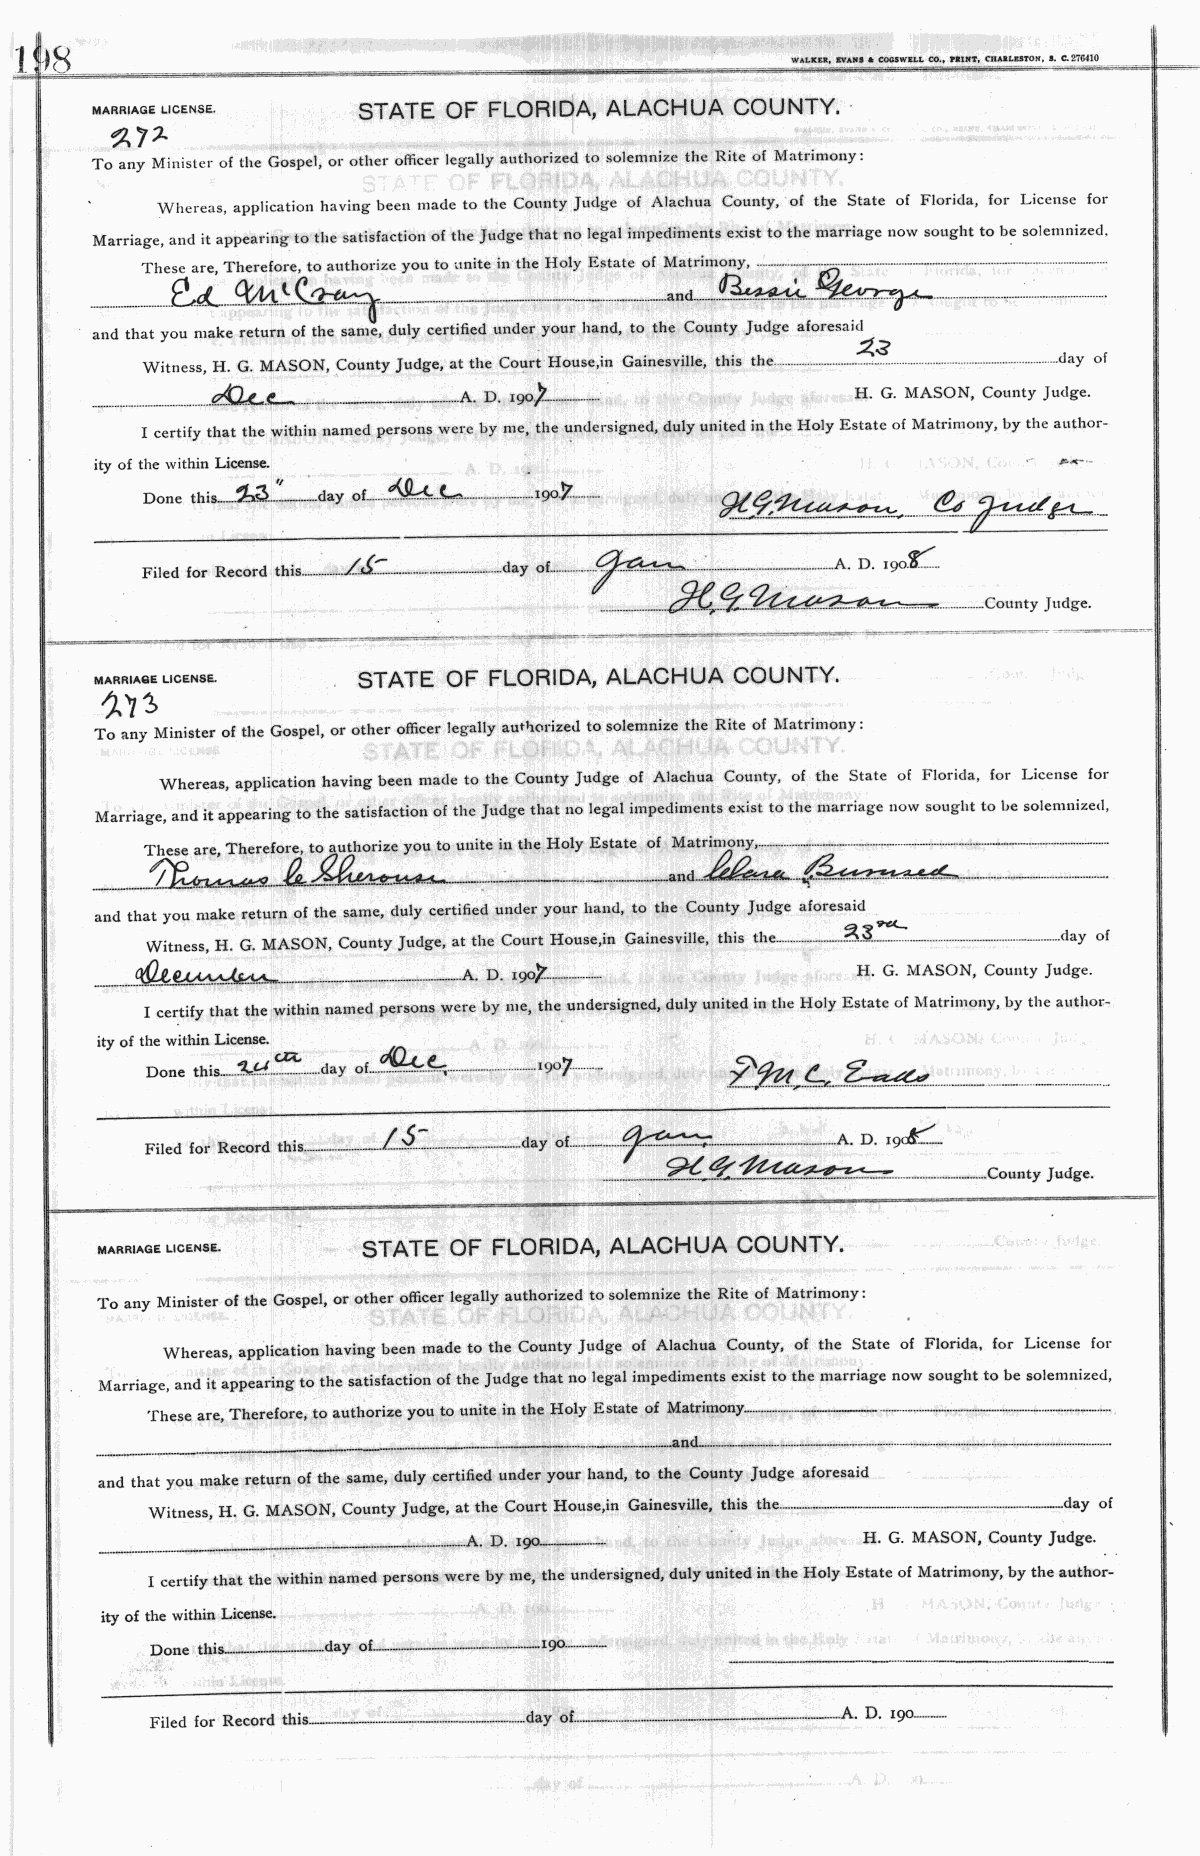 198
WALKER, EVANS & COGSWELL CO., PRINT, CHARLESTON, S. C. 276410
MARRIAGE LICENSE. STATE OF FLORIDA, ALACHUA COUNTY.
272
To any Minister of the Gospel, or other officer legally authorized to solemnize the Rite of Matrimony:
Whereas, application having been made to the County Judge of Alachua County, of the State of Florida, for License for
Marriage, and it appearing to the satisfaction of the Judge that no legal impediments exist to the marriage now sought to be solemnized,
These are, Therefore, to authorize you to unite in the Holy Estate of Matrimony,
Ed McCray and Bessie George
and that you make return of the same, duly certified under your hand, to the County Judge aforesaid
Witness, H. G. MASON, County Judge, at the Court House, in Gainesville, this the 23 day of
Dec A. D. 1907 H. G. MASON, County Judge.
I certify that the within named persons were by me, the undersigned, duly united in the Holy Estate of Matrimony, by the author-
ity of the within License.
Done this 23" day of Dec 1907
H.G. Mason, Co Judge
Filed for Record this 15 day of Jan A. D. 1908
H. G. Mason County Judge.
MARRIAGE LICENSE. STATE OF FLORIDA, ALACHUA COUNTY.
273
To any Minister of the Gospel, or other officer legally authorized to solemnize the Rite of Matrimony:
Whereas, application having been made to the County Judge of Alachua County, of the State of Florida, for License for
Marriage, and it appearing to the satisfaction of the Judge that no legal impediments exist to the marriage now sought to be solemnized,
These are, Therefore, to authorize you to unite in the Holy Estate of Matrimony,
Thomas C Sherouse and Clara Burnsed
and that you make return of the same, duly certified under your hand, to the County Judge aforesaid
Witness, H. G. MASON, County Judge, at the Court House, in Gainesville, this the 23rd day of
December A. D. 1907 H. G. MASON, County Judge.
I certify that the within named persons were by me, the undersigned, duly united in the Holy Estate of Matrimony, by the author-
ity of the within License.
Done this 24th day of Dec, 1907 F. M. C. Eads
Filed for Record this 15 day of Jan, A. D. 1908
H. G. Mason County Judge.
MARRIAGE LICENSE. STATE OF FLORIDA, ALACHUA COUNTY.
To any Minister of the Gospel, or other officer legally authorized to solemnize the Rite of Matrimony:
Whereas, application having been made to the County Judge of Alachua County, of the State of Florida, for License for
Marriage, and it appearing to the satisfaction of the Judge that no legal impediments exist to the marriage now sought to be solemnized,
These are, Therefore, to authorize you to unite in the Holy Estate of Matrimony
and
and that you make return of the same, duly certified under your hand, to the County Judge aforesaid
Witness, H. G. MASON, County Judge, at the Court House, in Gainesville, this the day of
A. D. 190 H. G. MASON, County Judge.
I certify that the within named persons were by me, the undersigned, duly united in the Holy Estate of Matrimony, by the author-
ity of the within License.
Done this day of 190
Filed for Record this day of A. D. 190